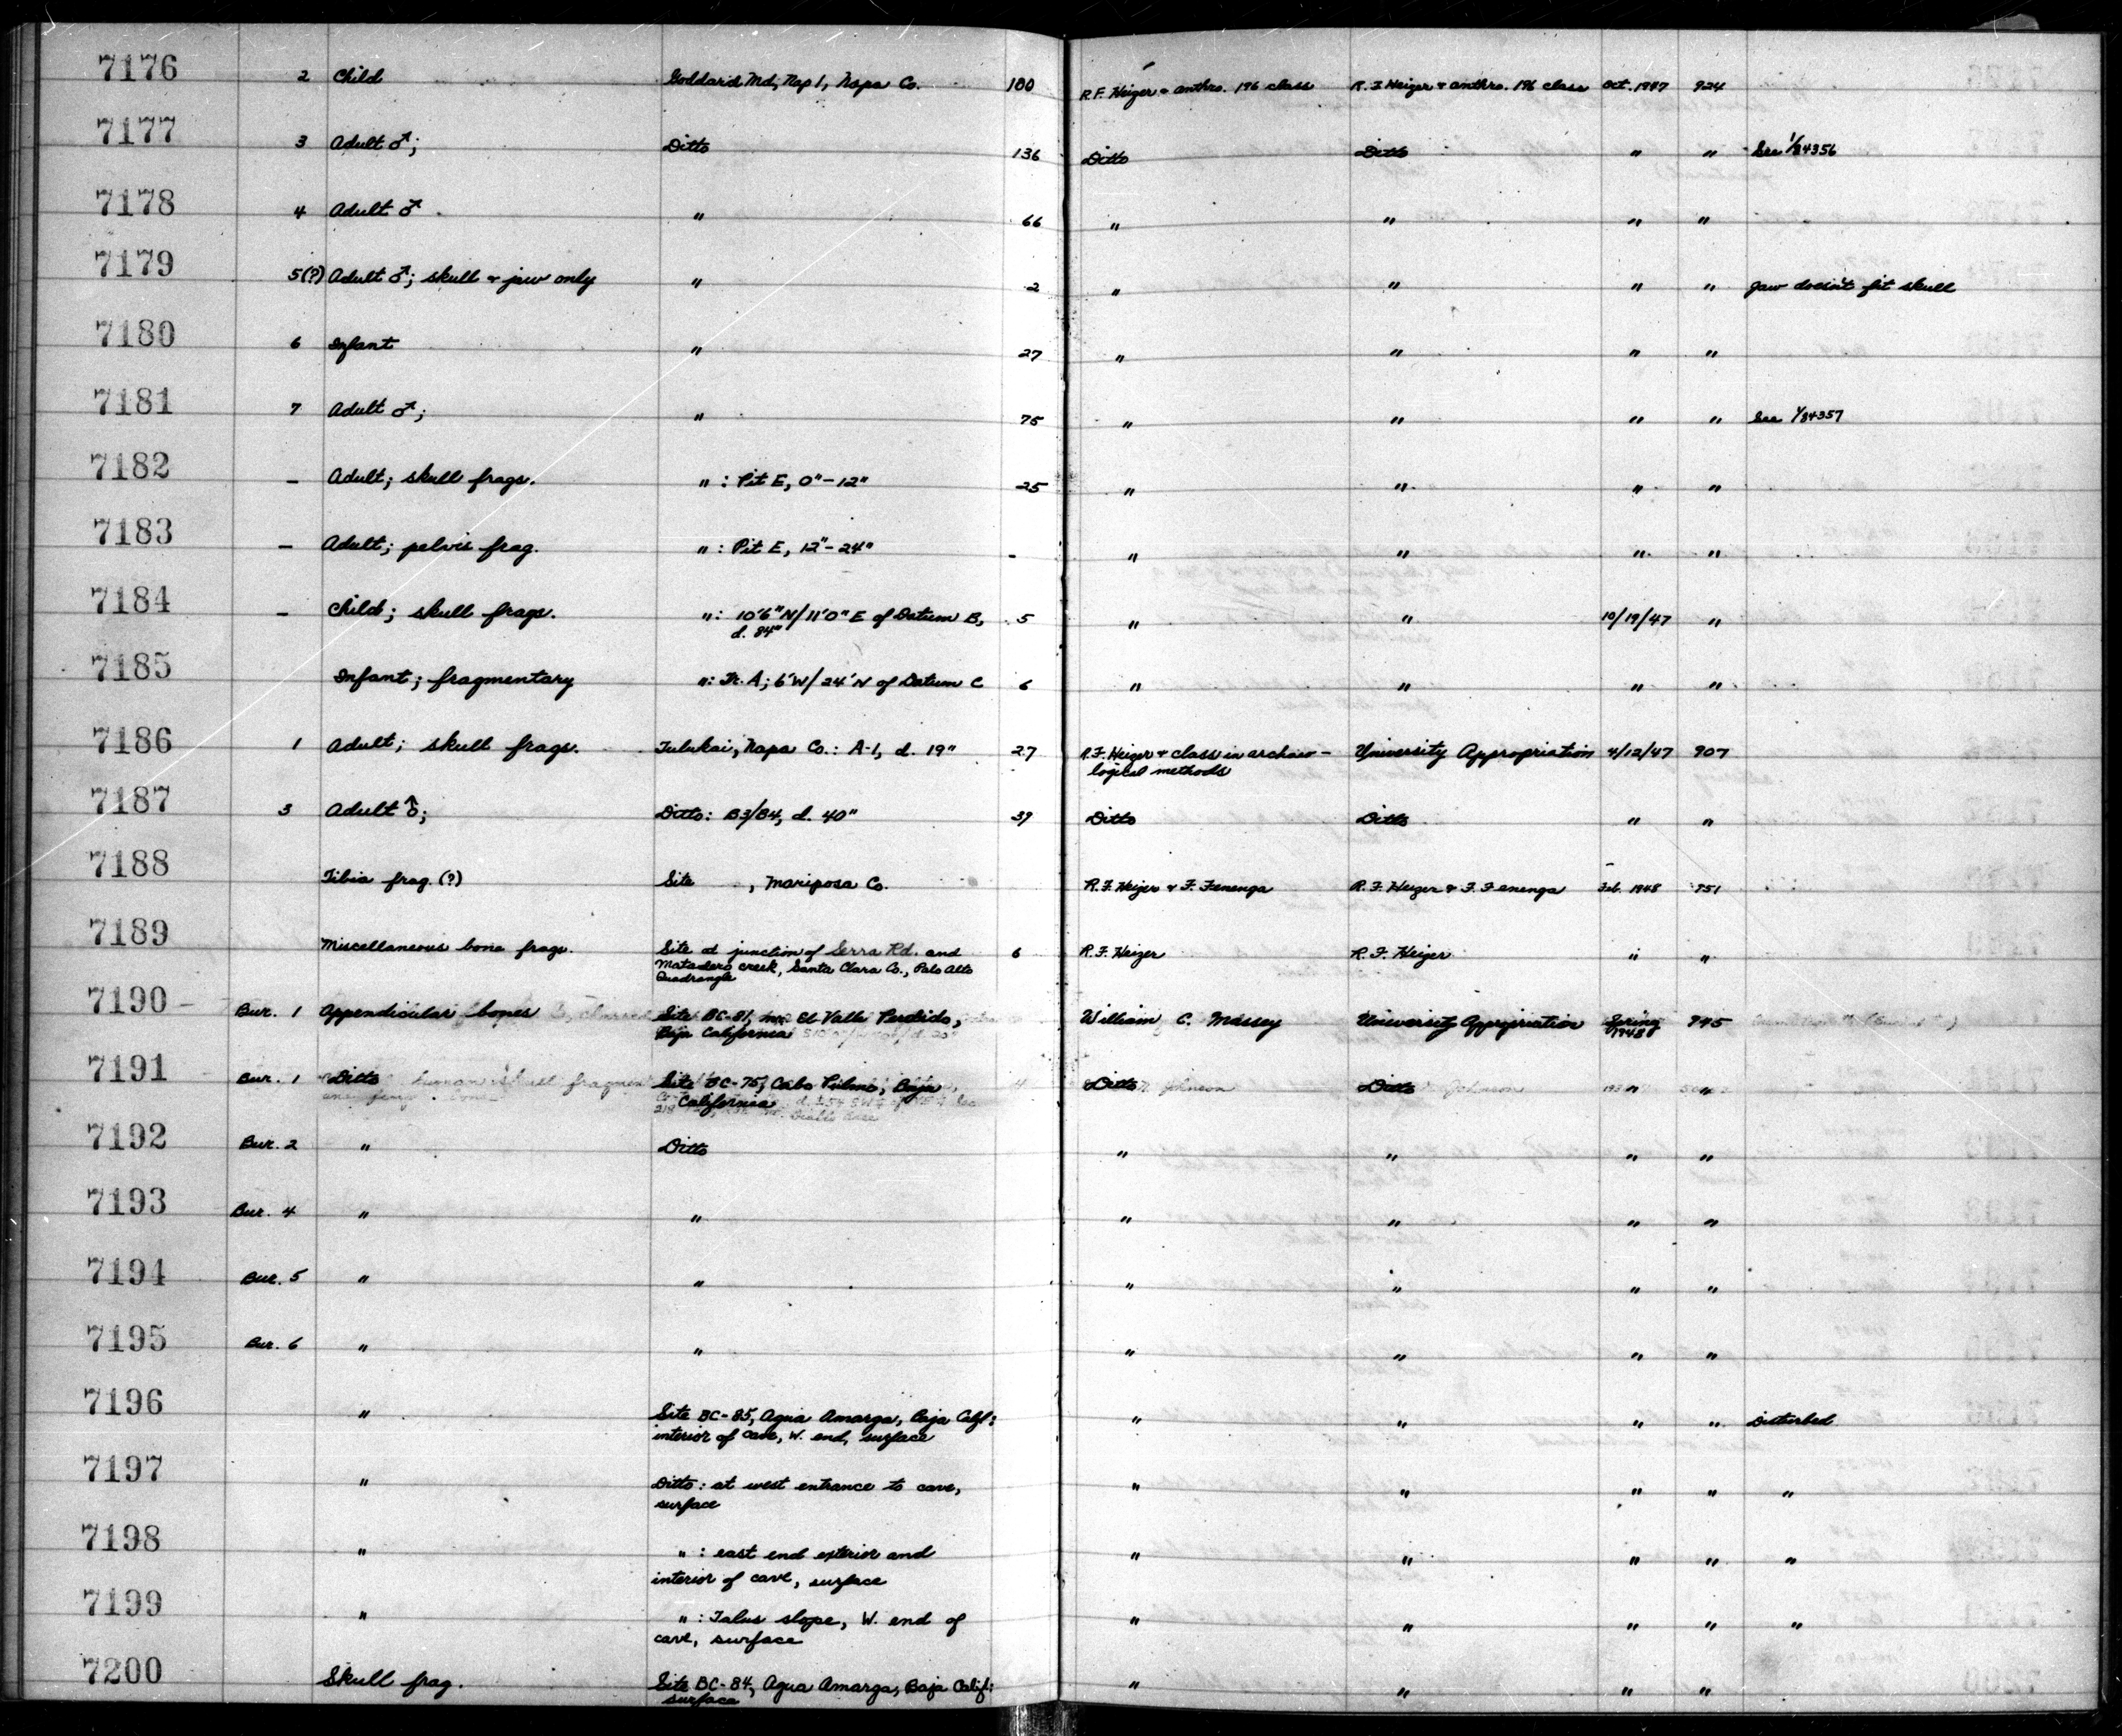 7176 2 Child Goddard Md, Nap 1, Napa Co. 100 R.F. Heizer & anthro. 196 class R.F. Heizer & anthro. 196 class Oct. 1947 924
7177 3 Adult ♂; Ditto 136 Ditto Ditto " " See 1/84356
7178 4 Adult ♂. " 66 " " " "
7179 5(?) Adult ♂; skull & jaw only " 2 " " " " Jaw doesn't fit skull
7180 6 Infant " 27 " " " "
7181 7 Adult ♂; " 75 " " " " See 1/84357
7182 – Adult; skull frags. " : Pit E, 0"–12" 25 " " " "
7183 – Adult; pelvis frag. " : Pit E, 12"–24" – " " " "
7184 – Child; skull frags. " : 10'6" N/11'0" E of Datum B, 5 " " 10/19/47 "
d. 84"
7185 Infant; fragmentary " : Tr. A; 6'W/24'N of Datum C 6 " " " "
7186 1 Adult; skull frags. Tulukai, Napa Co.: A-1, d. 19" 27 R.F. Heizer & class in archaeo– University Appropriation 4/12/47 907
logical methods
7187 3 Adult ♂; Ditto: B3/B4, d. 40" 39 Ditto Ditto " "
7188 Tibia frag. (?) Site , Mariposa Co. R.F. Heizer & F. Fenenga R.F. Heizer & F. Fenenga Feb. 1948 951
7189 Miscellaneous bone frags. Site at junction of Serra Rd. and 6 R.F. Heizer R.F. Heizer " "
Matadero creek, Santa Clara Co., Palo Alto
Quadrangle
7190 – Bur. 1 Appendicular bones Site BC-81, El Valle Perdido, William C. Massey University Appropriation Spring 945
Baja California 1948
7191 Bur. 1 Ditto Site BC-75, Cabo Pulmo, Baja Ditto Ditto " "
California
7192 Bur. 2 " Ditto " " " "
7193 Bur. 4 " " " " " "
7194 Bur. 5 " " " " " "
7195 Bur. 6 " " " " " "
7196 " Site BC-85, Agua Amarga, Baja Calif: " " " " Disturbed
interior of cave, W. end, surface
7197 " Ditto: at west entrance to cave, " " " " "
surface
7198 " " : east end exterior and " " " " "
interior of cave, surface
7199 " " : Talus slope, W. end of " " " " "
cave, surface
7200 Skull frag. Site BC-84, Agua Amarga, Baja Calif: " " " "
surface